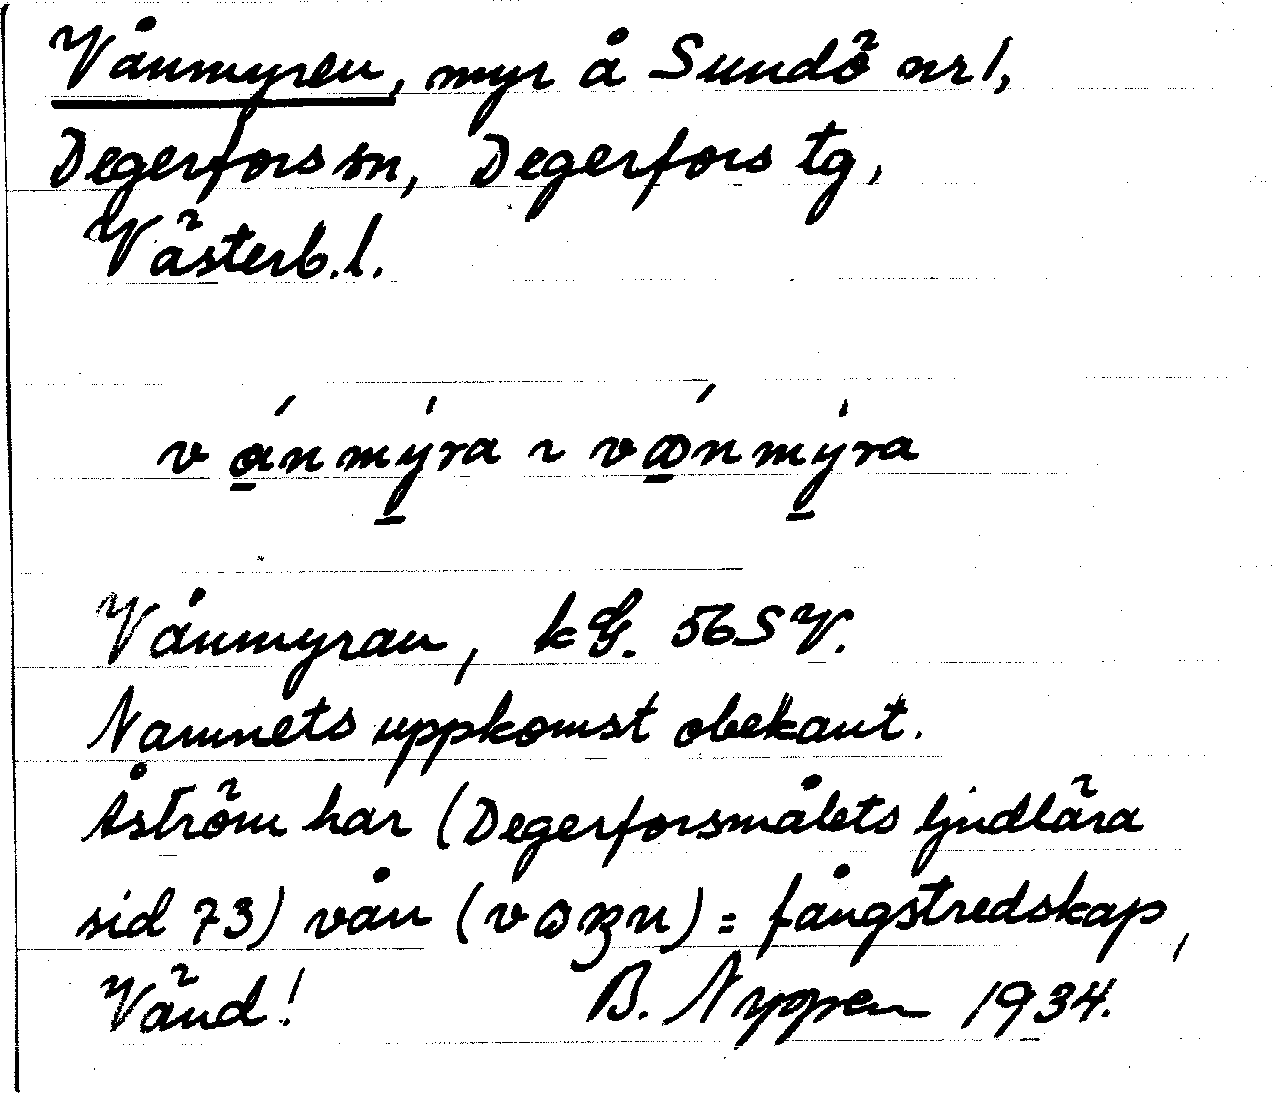 Vånmyren, myr å Sundö nr 1,
Degerfors sn, Degerfors tg,
Västerb.l.
vánmýra ~ vánmýra
Vånmyran, kG. 56 SV.
Namnets uppkomst obekant.
Åström har (Degerforsmålets ljudlära
sid 73) vån = fångstredskap,
Vänd! B. Nyppen 1934.